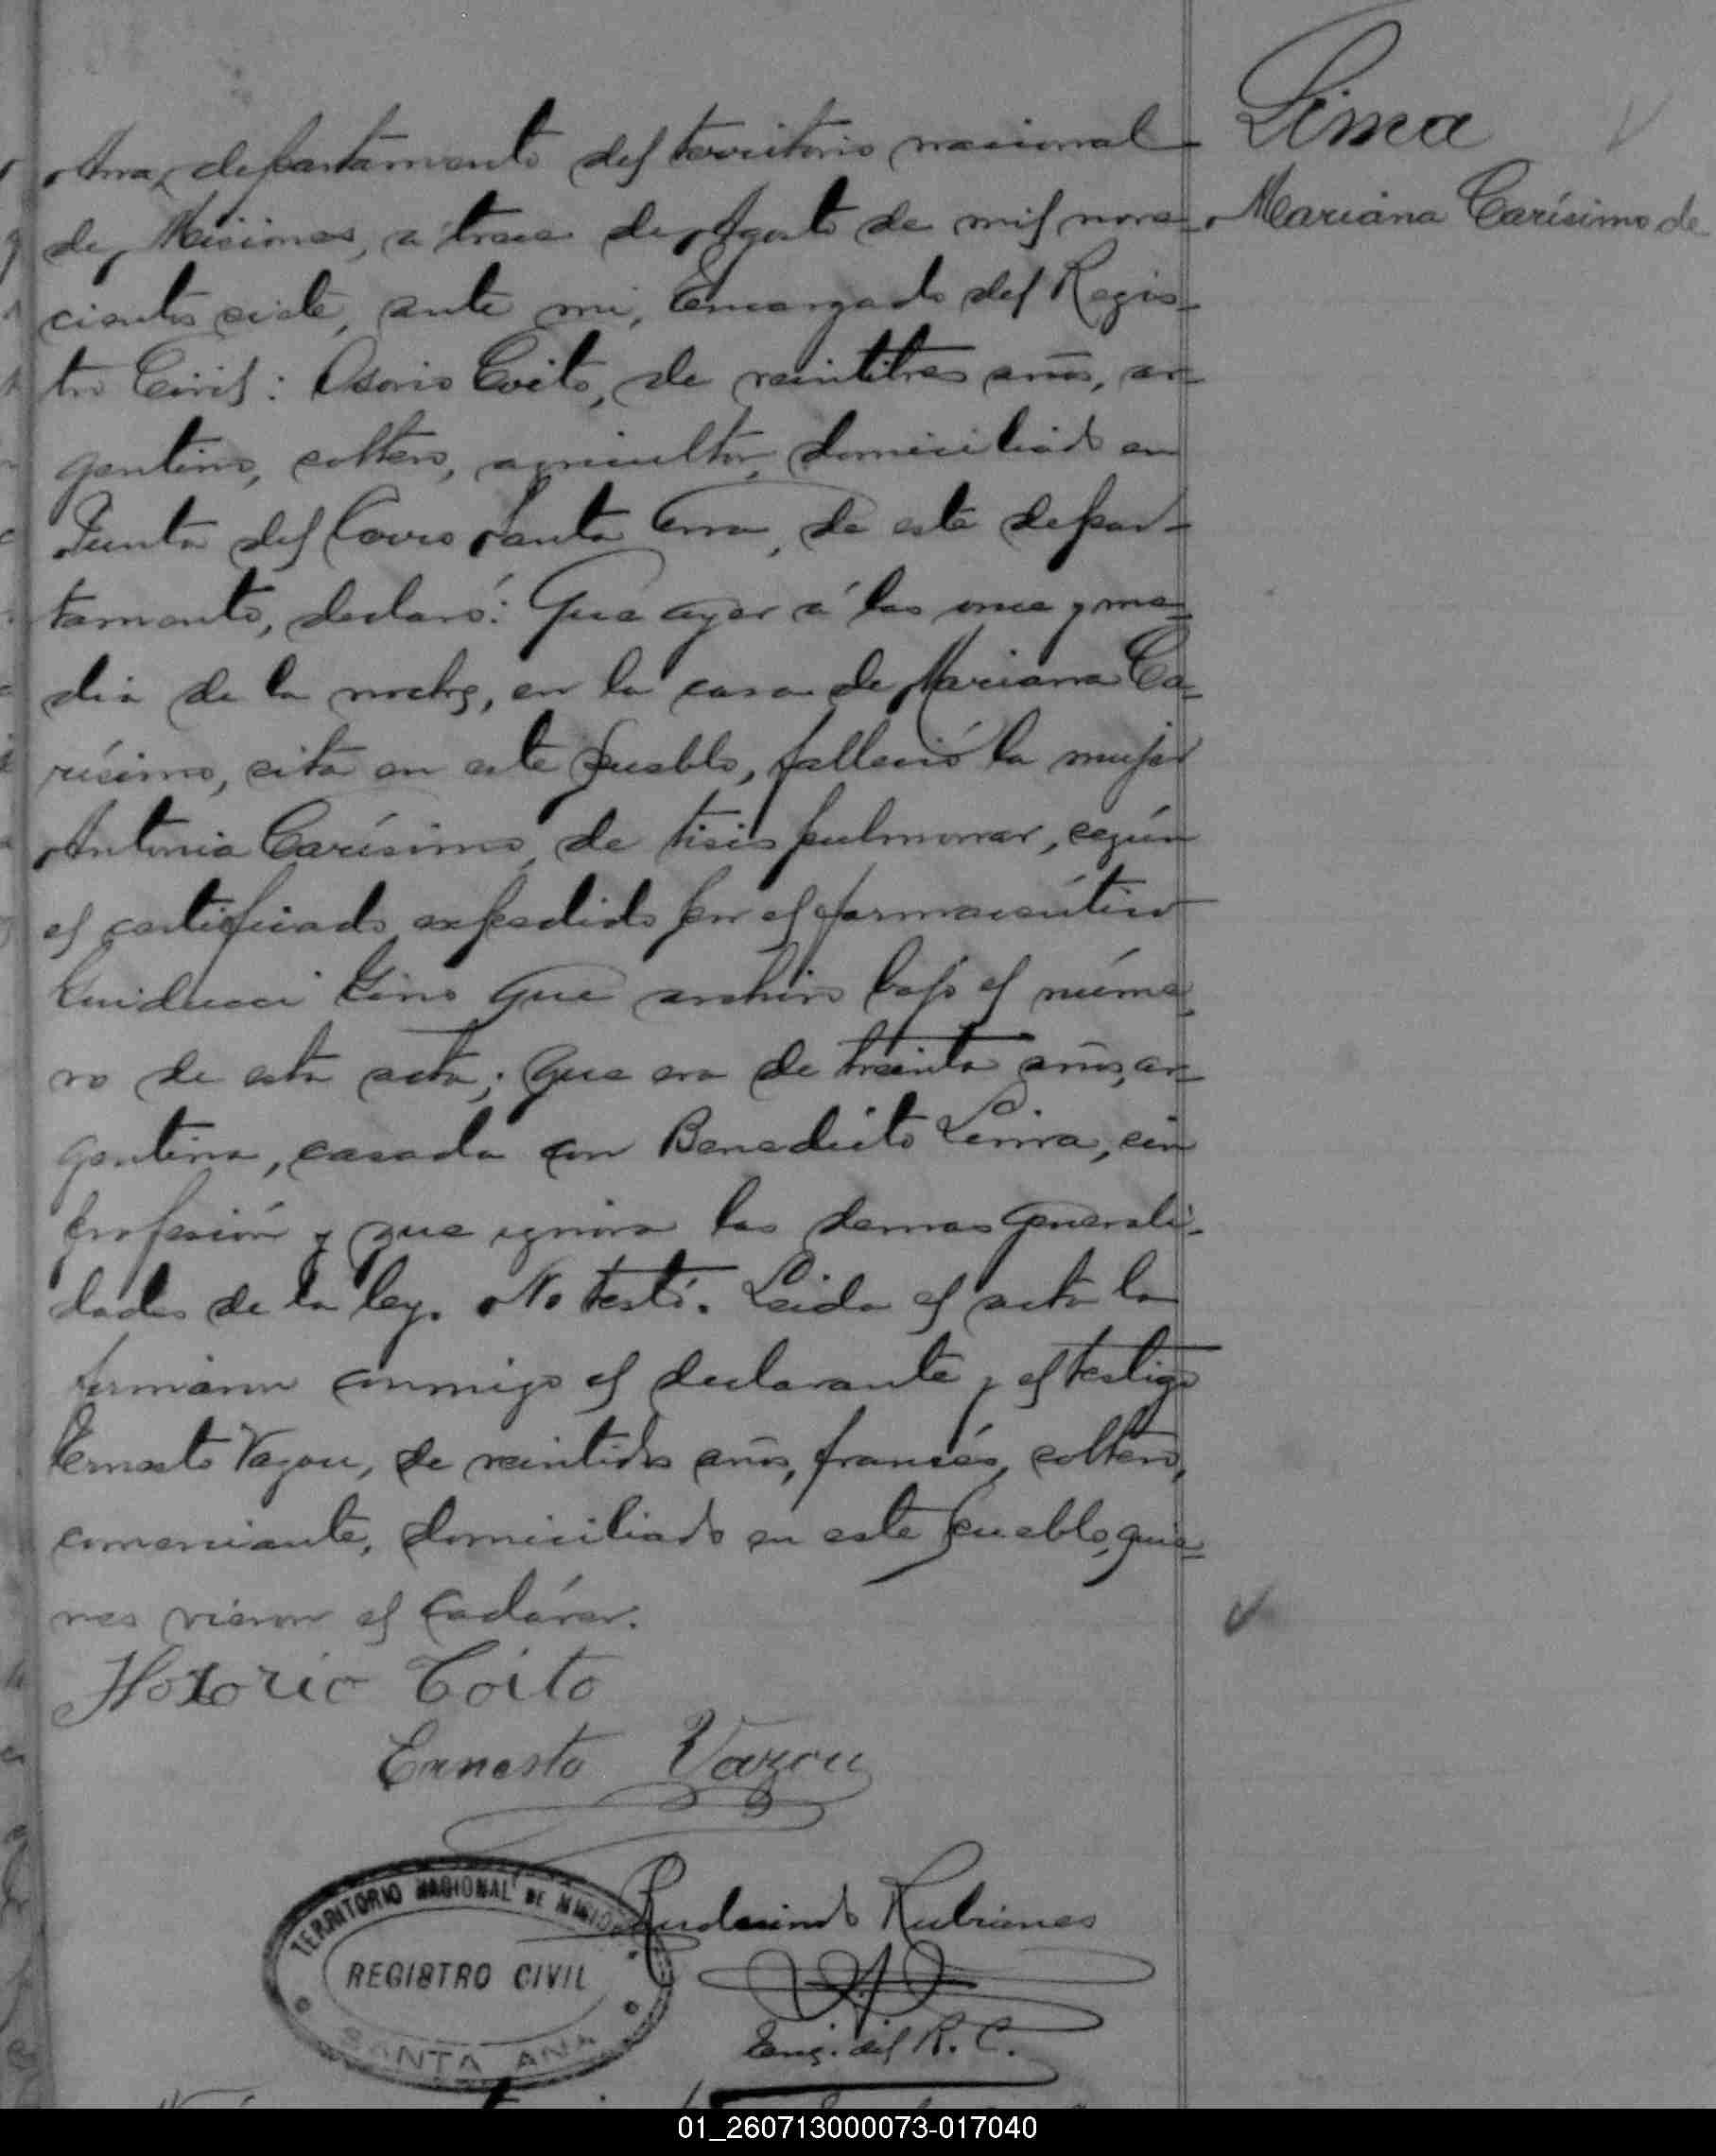 Lima
Mariana Carísimo de
Ana, departamento del territorio nacional
de Misiones, a trece de Agosto de mil nove-
cientos siete, ante mi, Encargado del Regis-
tro Civil: Osorio Coito, de veintitres años, ar-
gentino, soltero, agricultor, domiciliado en
Punta del Cerro Santa Ana, de este depar-
tamento, declaró: Que ayer á las once y me-
dia de la noche, en la casa de Mariana Ca-
rísimo, sita en este pueblo, falleció la mujer
Antonia Carísimo, de tisis pulmonar, según
el certificado expedido por el farmacéutico
Guiducci Gino que archivo bajo el núme-
ro de esta acta; que era de treinta años, ar-
gentina, casada con Benedicto Lima, sin
profesión y que ignora las demas generali-
dades de la ley. No testó. Leida el acta la
firmaron conmigo el declarante y el testigo
Ernesto Vazou, de veintidos años, francés, soltero,
comerciante, domiciliado en este pueblo, quie-
nes vieron el cadáver.
Hozorio Coito
Ernesto Vazou
Rudesindo Rubiones
Enc. del R. C.
TERRITORIO NACIONAL DE MISIONES
REGISTRO CIVIL
SANTA ANA
01_260713000073-017040